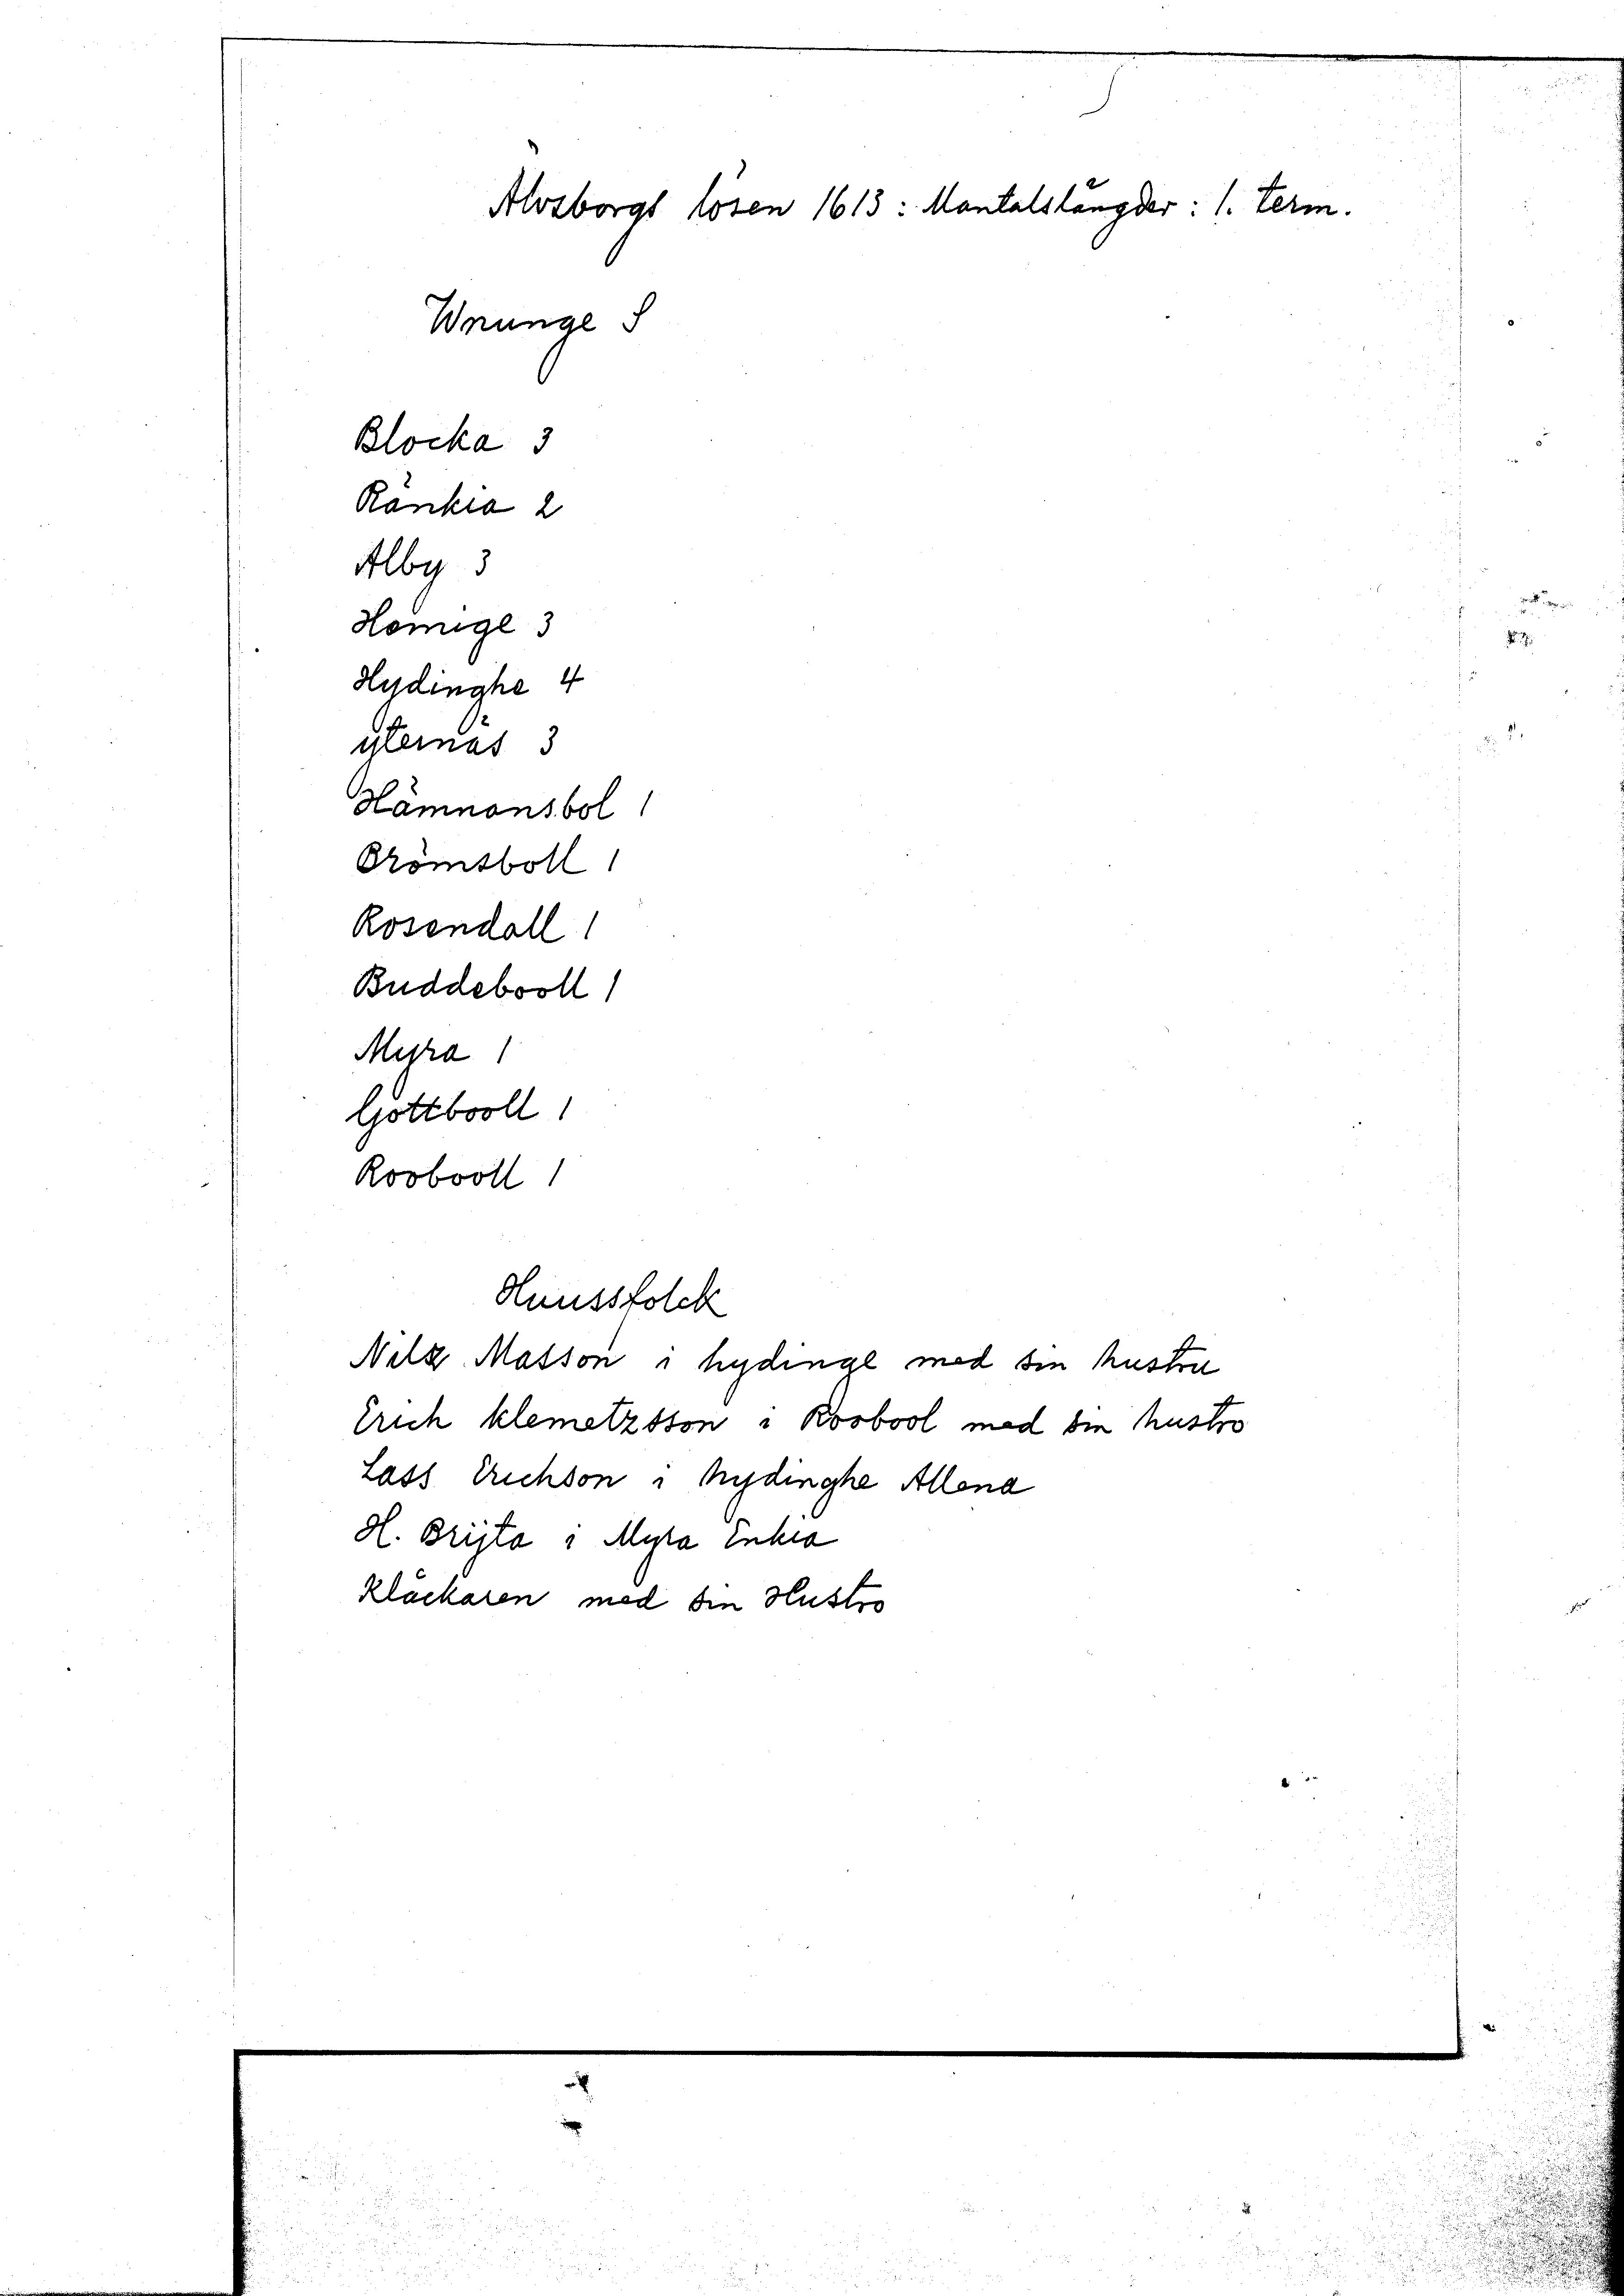 Älvsborgs lösen 1613: Mantalslängder: 1. term.
Wnunge S
Blocka 3
Ränkia 2
Alby 3
Hemige 3
Hydinghe 4
yternäs 3
Hämnansbol 1
Brömsboll 1
Rosendall 1
Buddebooll 1
Myra 1
Gottbooll 1
Roobooll 1
Huussfolck
Nilz Matson i hydinge med sin hustru
Erich klemetzsson i Roobool med sin hustro
Lass Erichson i hydinghe Allena
H. Brijta i Myra Enkia
kläckaren med sin Hustro